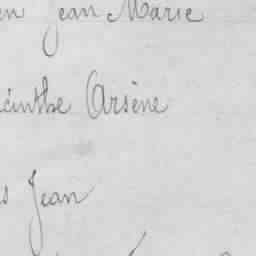 en Jean Marie
acinthe Arsène
s Jean